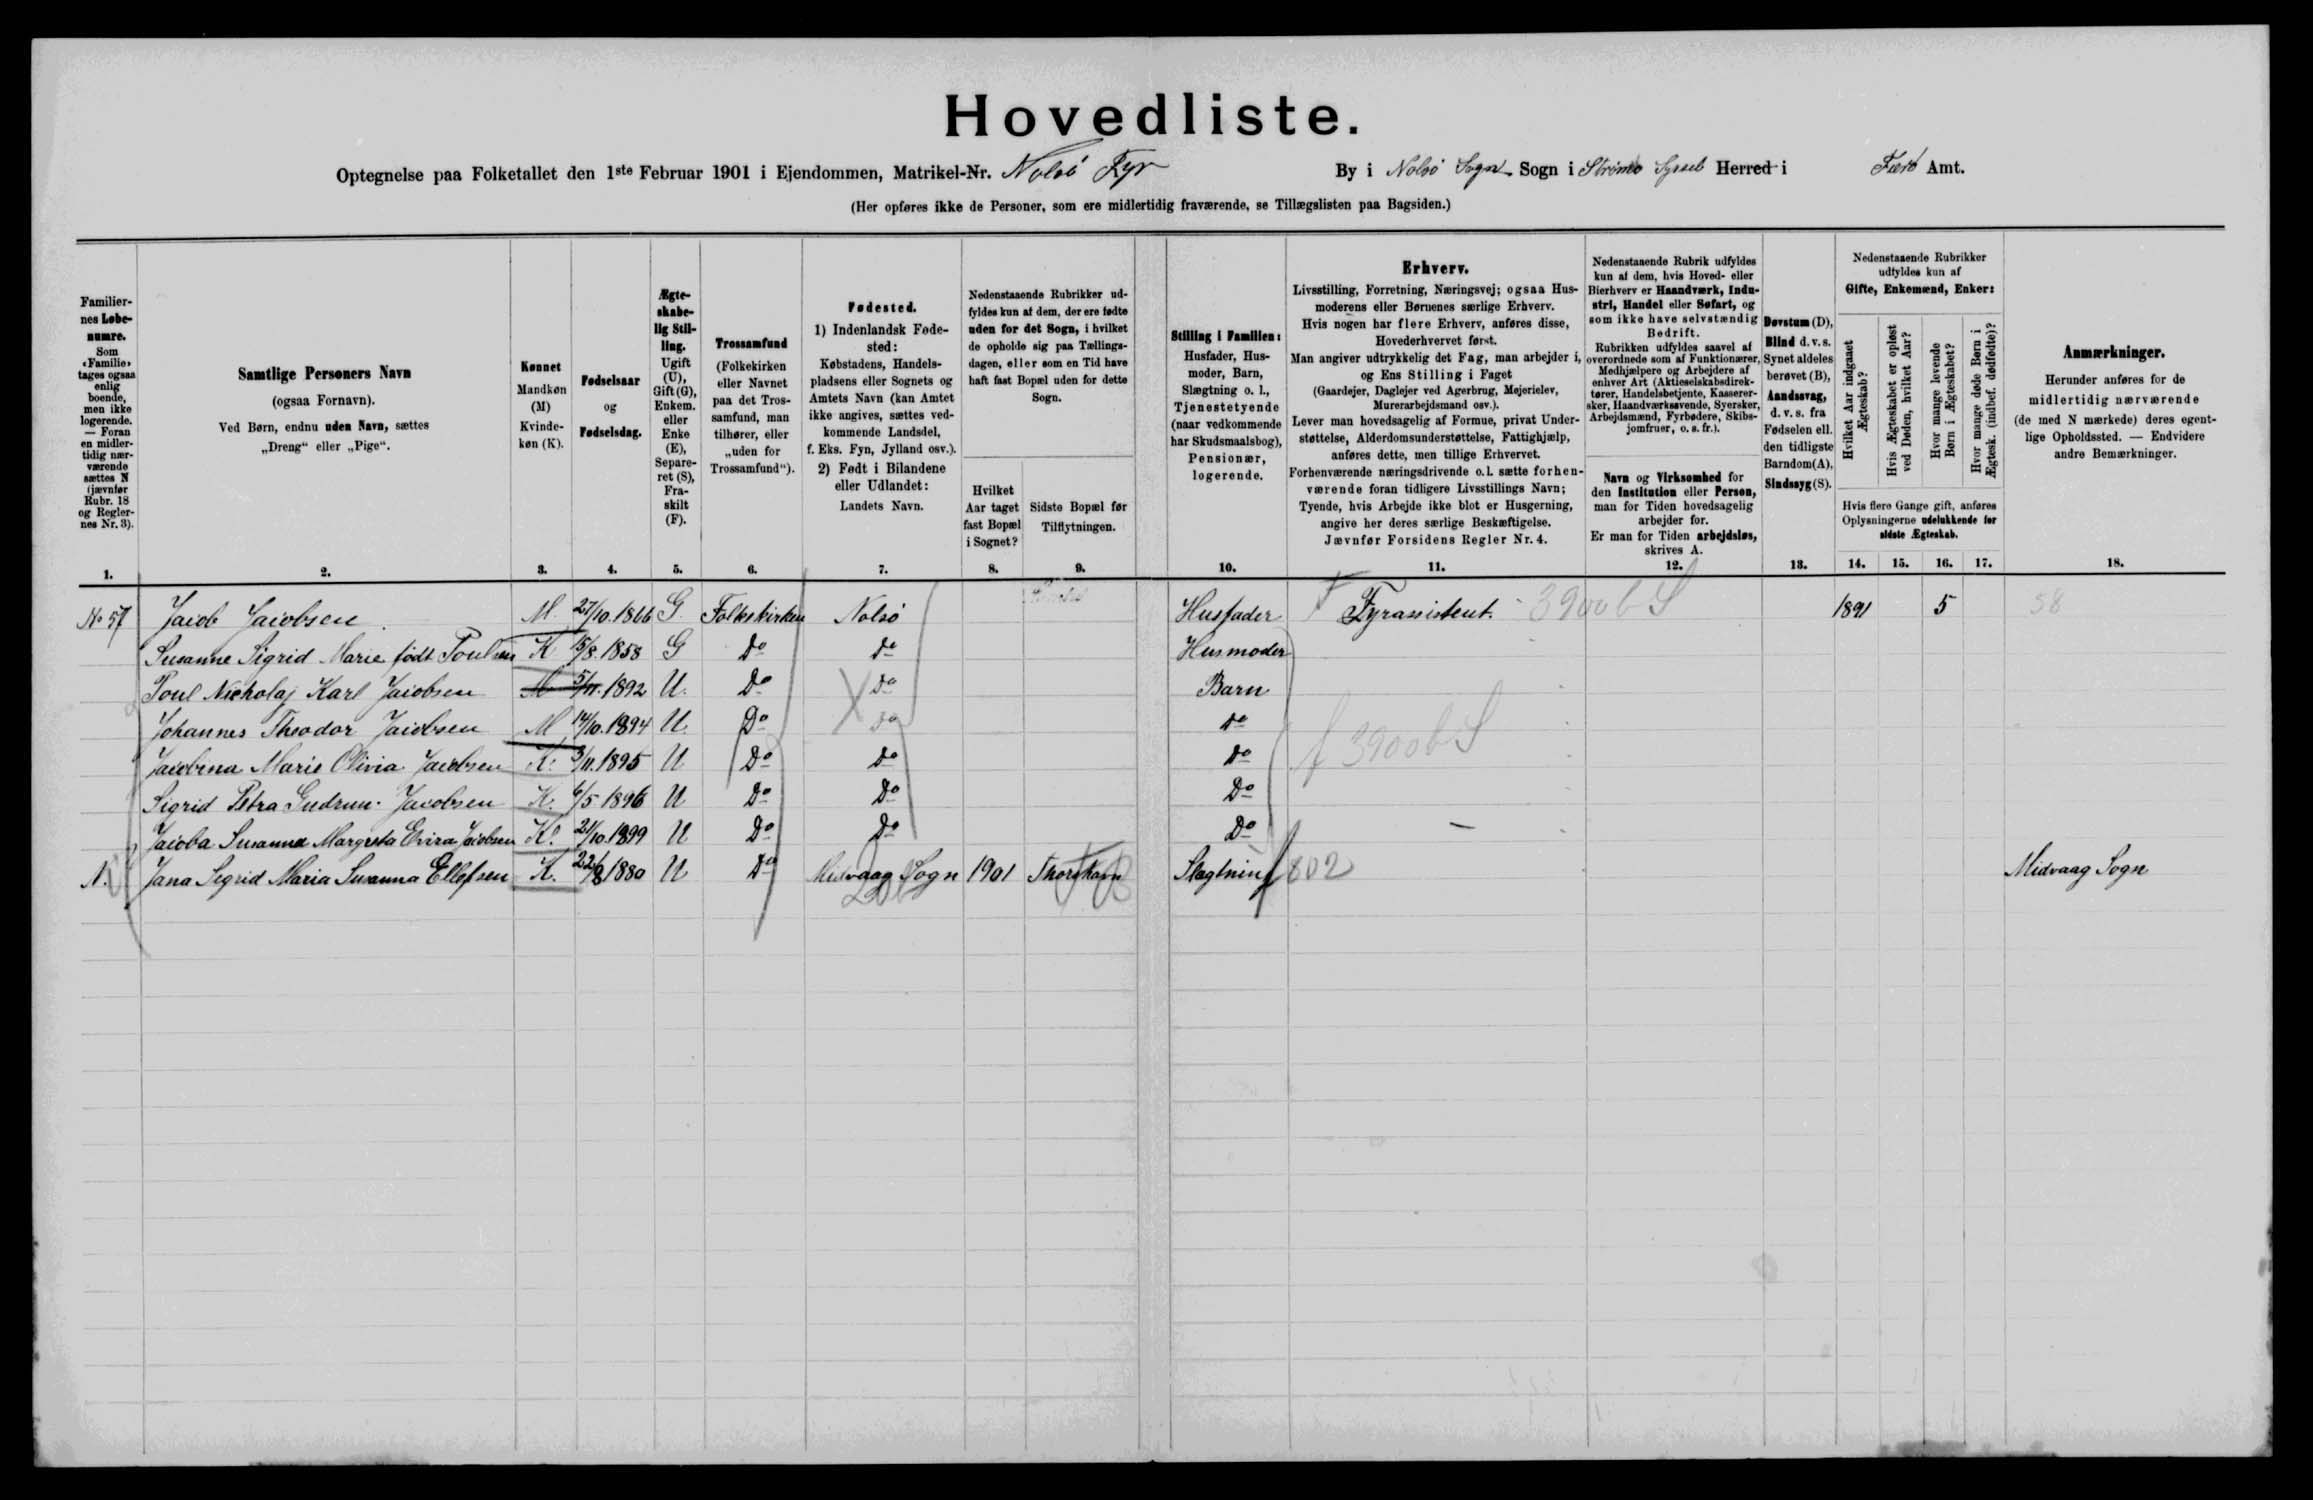 Hovedliste.
Optegnelse paa Folketallet den 1ste Februar 1901 i Ejendommen, Matrikel-Nr. Nolsö Fyr By i Nolsö Sogn Sogn i Strömö Syssel Herred i Færö Amt.
(Her opføres ikke de Personer, som ere midlertidig fraværende, se Tillægslisten paa Bagsiden.)
Familiernes Løbenumre.
Som «Familie» tages ogsaa enlig boende, men ikke logerende. — Foran en midlertidig nærværende sættes N (jævnfør Rubr. 18 og Reglernes Nr. 3).
1.
Samtlige Personers Navn
(ogsaa Fornavn).
Ved Børn, endnu uden Navn, sættes
„Dreng“ eller „Pige“.
2.
Kønnet
Mandkøn (M)
Kvindekøn (K).
3.
Fødselsaar
og
Fødselsdag.
4.
Ægteskabelig Stilling.
Ugift (U), Gift (G), Enkem. eller Enke (E), Separeret (S), Fraskilt (F).
5.
Trossamfund
(Folkekirken eller Navnet paa det Trossamfund, man tilhører, eller „uden for Trossamfund“).
6.
Fødested.
1) Indenlandsk Fødested:
Købstadens, Handelspladsens eller Sognets og Amtets Navn (kan Amtet ikke angives, sættes vedkommende Landsdel, f. Eks. Fyn, Jylland osv.).
2) Født i Bilandene eller Udlandet:
Landets Navn.
7.
Nedenstaaende Rubrikker udfyldes kun af dem, der ere fødte uden for det Sogn, i hvilket de opholde sig paa Tællingsdagen, eller som en Tid have haft fast Bopæl uden for dette Sogn.
Hvilket Aar taget fast Bopæl i Sognet?
8.
Sidste Bopæl før Tilflytningen.
9.
Stilling i Familien:
Husfader, Husmoder, Barn, Slægtning o. l., Tjenestetyende (naar vedkommende har Skudsmaalsbog), Pensionær, logerende.
10.
Erhverv.
Livsstilling, Forretning, Næringsvej; ogsaa Husmoderens eller Børnenes særlige Erhverv.
Hvis nogen har flere Erhverv, anføres disse, Hovederhvervet først.
Man angiver udtrykkelig det Fag, man arbejder i, og Ens Stilling i Faget
(Gaardejer, Daglejer ved Agerbrug, Mejerielev, Murerarbejdsmand osv.).
Lever man hovedsagelig af Formue, privat Understøttelse, Alderdomsunderstøttelse, Fattighjælp, anføres dette, men tillige Erhvervet.
Forhenværende næringsdrivende o.l. sætte forhenværende foran tidligere Livsstillings Navn;
Tyende, hvis Arbejde ikke blot er Husgerning, angive her deres særlige Beskæftigelse.
Jævnfør Forsidens Regler Nr. 4.
11.
Nedenstaaende Rubrik udfyldes kun af dem, hvis Hoved- eller Bierhverv er Haandværk, Industri, Handel eller Søfart, og som ikke have selvstændig Bedrift.
Rubrikken udfyldes saavel af overordnede som af Funktionærer, Medhjælpere og Arbejdere af enhver Art (Aktieselskabsdirektører, Handelsbetjente, Kasserersker, Haandværkssvende, Syersker, Arbejdsmænd, Fyrbødere, Skibsjomfruer, o. s. fr.).
Navn og Virksomhed for den Institution eller Person, man for Tiden hovedsagelig arbejder for.
Er man for Tiden arbejdsløs, skrives A.
12.
Døvstum (D),
Blind d. v. s. Synet aldeles berøvet (B),
Aandssvag, d. v. s. fra Fødselen ell. den tidligste Barndom (A),
Sindssyg (S).
13.
Nedenstaaende Rubrikker udfyldes kun af
Gifte, Enkemænd, Enker:
Hvilket Aar indgaaet Ægteskab?
Hvis Ægteskabet er opløst ved Døden, hvilket Aar?
Hvor mange levende Børn i Ægteskabet?
Hvor mange døde Børn i Ægtesk. (indbef. dødfødte)?
Hvis flere Gange gift, anføres Oplysningerne udelukkende for sidste Ægteskab.
14. 15. 16. 17.
Anmærkninger.
Herunder anføres for de midlertidig nærværende (de med N mærkede) deres egentlige Opholdssted. — Endvidere andre Bemærkninger.
18.
No 57 Jacob Jacobsen M. 27/10.1866 G Folkekirken Nolsö Husfader Fyrassistent. 3900 b S 1891 5 58
Susanne Sigrid Marie født Poulsen K 15/8.1858 G Do do Husmoder
Poul Nicholaj Karl Jacobsen M 5/11.1892 U. Do do Barn
Johannes Theodor Jacobsen M 14/10.1894 U. Do do do
Jacobina Marie Olivia Jacobsen K. 3/11.1895 U Do do do f 3900 b S
Sigrid Petra Gudrun Jacobsen K. 6/5 1896 U Do Do Do
Jacoba Susanna Margreta Elvira Jacobsen K. 21/10.1899 U Do Do Do —
N. Jana Sigrid Maria Susanna Ellefsen K. 22/8 1880 U Do Midvaag Sogn 1901 Thorshavn Slægtning 802 Midvaag Sogn